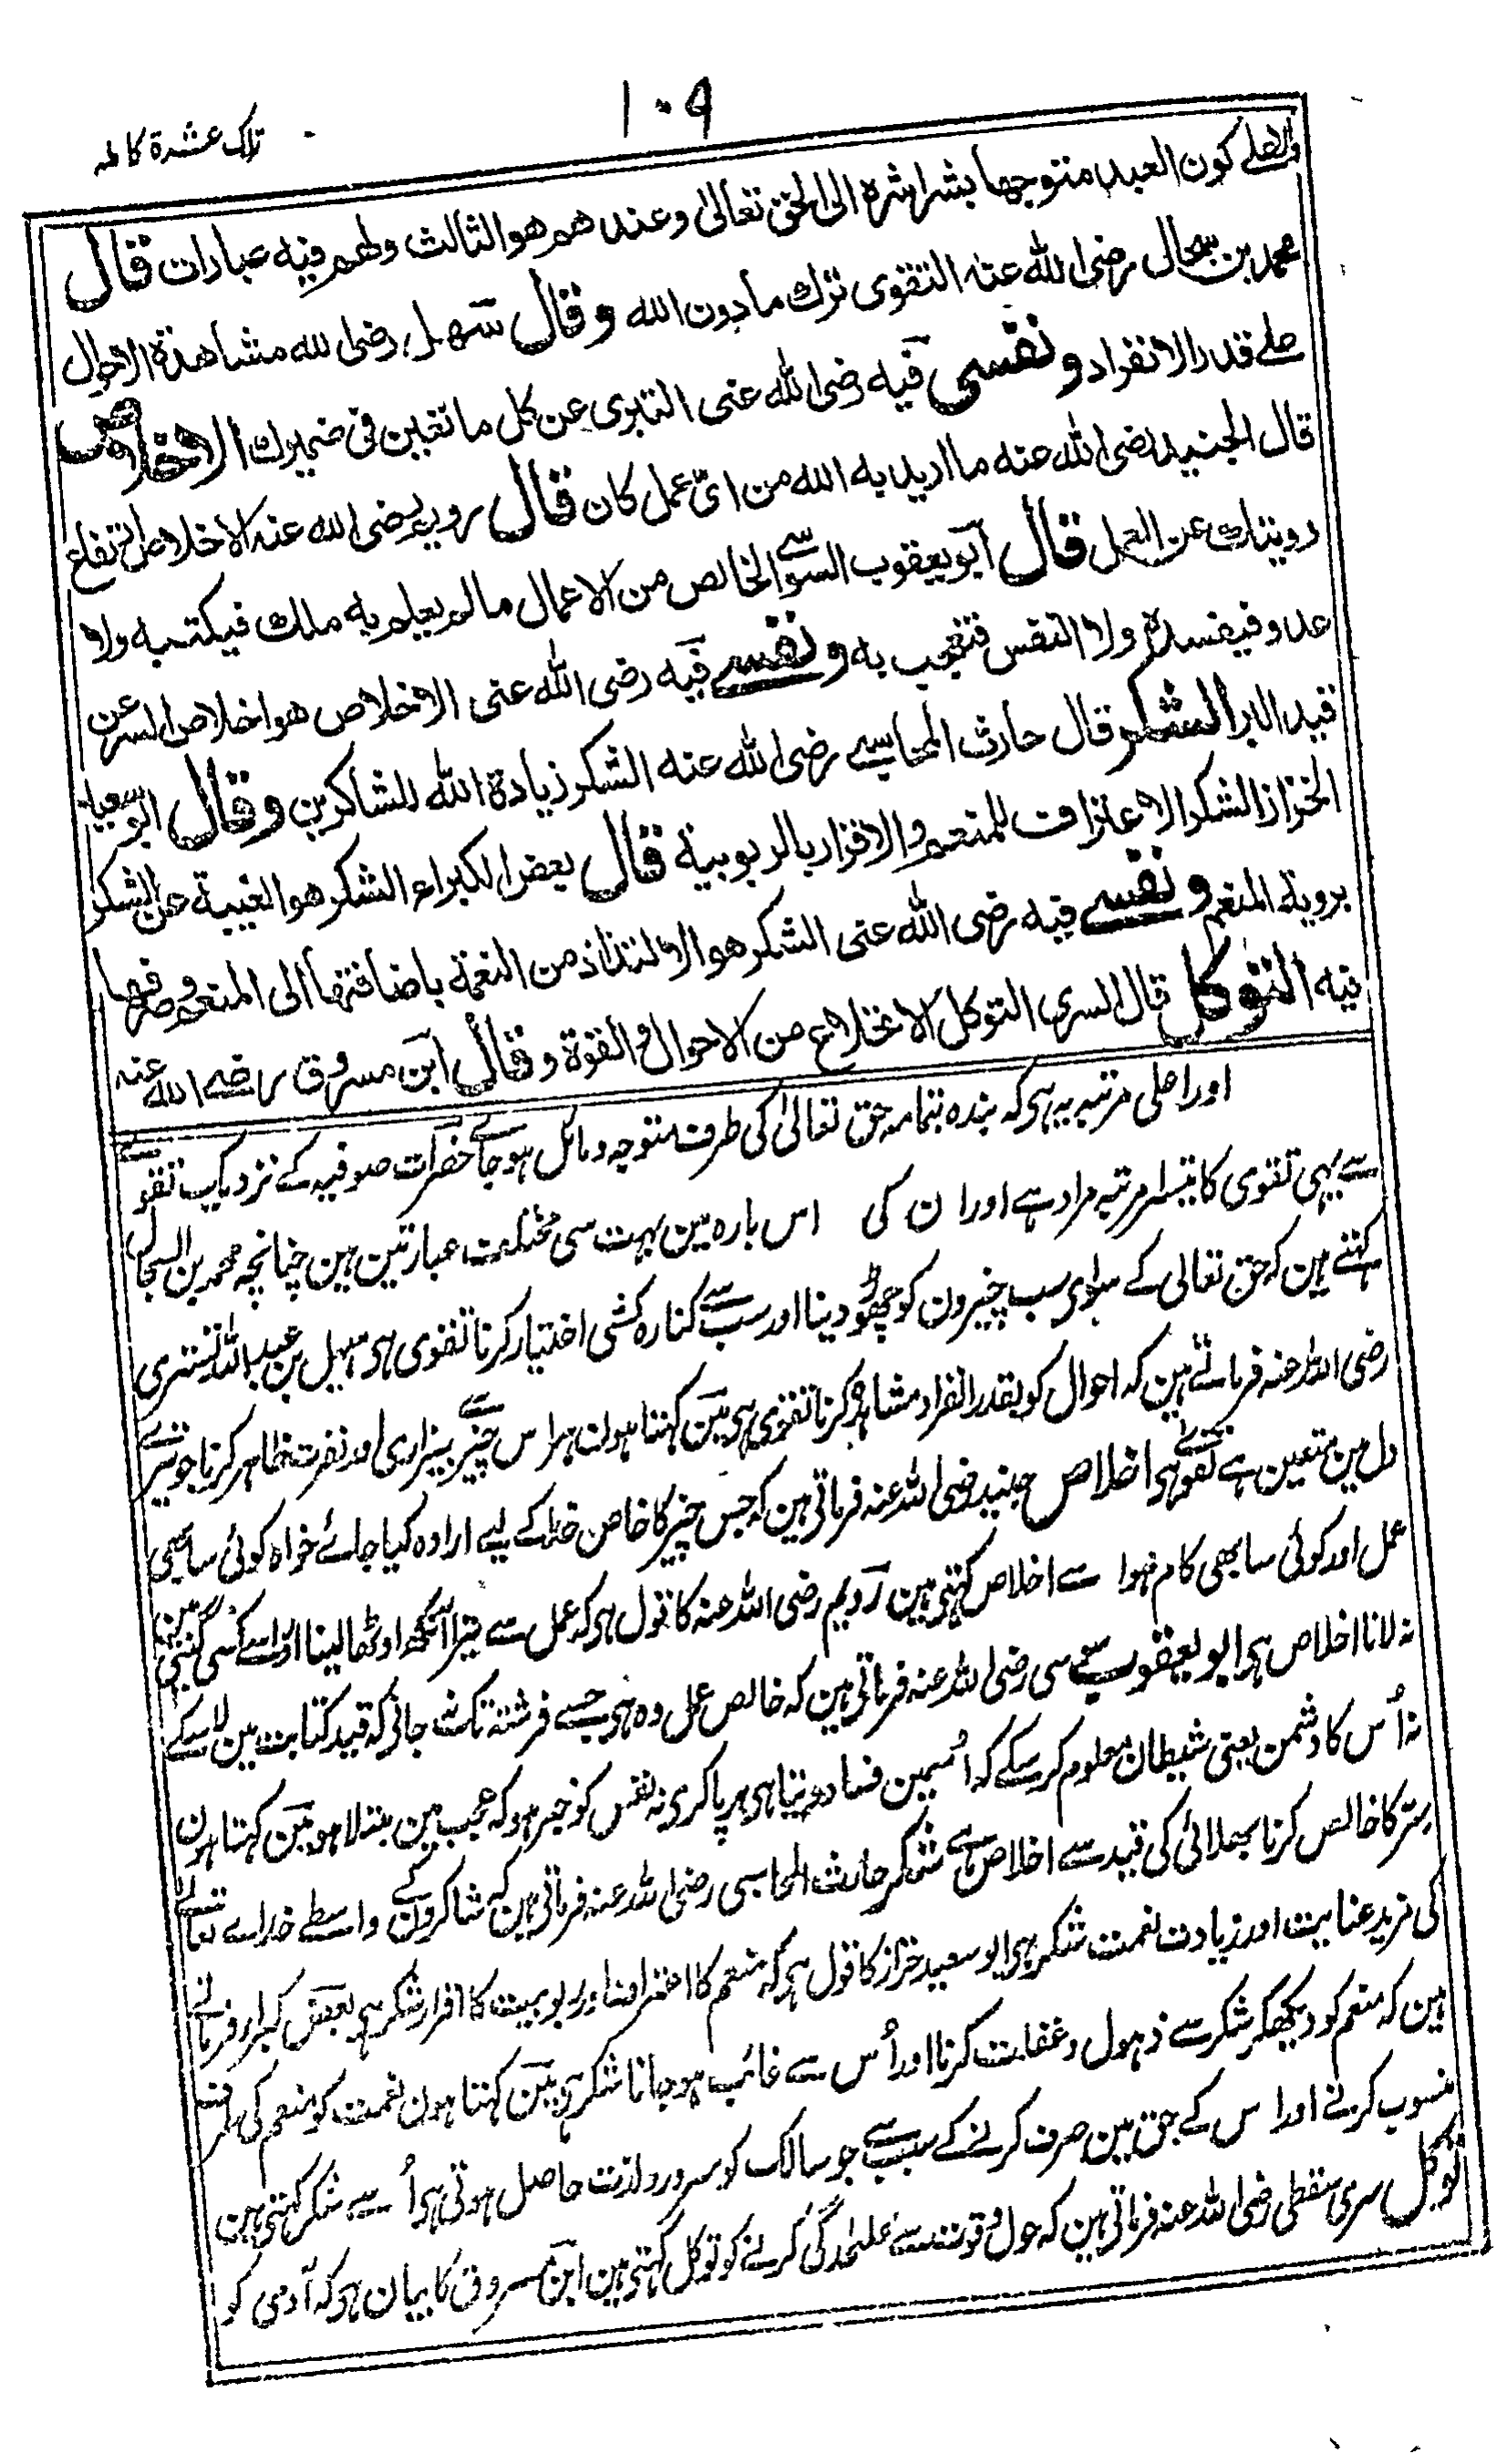 ۱۰۹
تلک عشرة کاملہ
واعلے کون العبد متوجها بشراشرة الی الحق تعالی وعندهم هو الثالث ولهم فیه عبارات قال
محمد بن سحال رضی الله عنه التقوی ترك ما دون الله وقال سهل رضی الله مشاهدة الاحوال
علے قدر الانفراد ونفسی فیه رضی الله عنی التبری عن کل ما تعین فی ضمیرك الاخلاص
قال الجنید رضی الله عنه ما ارید به الله من ای عمل کان قال رویم رضی الله عنه الاخلاص ارتفاع
رویتك عن العمل قال ابو یعقوب السوسے الخالص من الاعمال ما لم یعلم به ملك فیکتبه ولا
عدو فیفسده ولا النفس فتعجب به ونفسے فیه رضی الله عنی الاخلاص هو اخلاص السر عن
قید البر الشکر قال حارث المحاسبے رضی الله عنه الشکر زیادة الله للشاکرین وقال ابو سعید
الخزاز الشکر الاعتراف للمنعم والاقرار بالربوبیة قال بعض الکبراء الشکر هو الغیبة عن الشکر
برویة المنعم ونفسے فیه رضی الله عنی الشکر هو الالتذاذ من النعمة باضافتها الی المنعم وصرفها
فیه التوکل قال السری التوکل الانخلاع من الاحوال والقوة وقال ابن مسروق رضے الله عنه
اور اعلی مرتبہ یہ ہی کہ بندہ بتمامہ حق تعالیٰ کی طرف متوجہ و مائل ہو جاے حضرات صوفیہ کے نزدیک تقوے
سے یہی تقوی کا تیسرا مرتبہ مراد ہے اور ان کی اس بارہ مین بہت سی مختلف عبارتین ہین چنانچہ محمد بن السحال
کہتے ہین کہ حق تعالی کے سواے سب چیزون کو چھوڑ دینا اور سب سے کنارہ کشی اختیار کرنا تقوی ہی سہل بن عبد اللہ تستری
رضی اللہ عنہ فرماتے ہین کہ احوال کو بقدر انفراد مشاہدہ کرنا تقوی ہی مین کہتا ہون ہر اس چیز سے بیزاری اور نفرت ظاہر کرنا جو تیرے
دل مین متعین ہے تقوے ہی اخلاص جنید رضی اللہ عنہ فرماتی ہین کہ جس چیز کا خاص خدا کے لیے ارادہ کیا جائے خواہ کوئی سا بھی
عمل اور کوئی سا بھی کام ہو اسے اخلاص کہتی ہین رویم رضی اللہ عنہ کا قول ہی کہ عمل سے تیرا آنکھ اوٹھا لینا اور اسے کسی گنتی مین
نہ لانا اخلاص ہی ابو یعقوب سوسی رضی اللہ عنہ فرماتی ہین کہ خالص عمل وہ ہی جسے فرشتہ تک نہ جانی کہ قید کتابت مین لا سکے
نہ اُس کا دشمن یعنی شیطان معلوم کر سکے کہ اُسمین فساد و تباہی برپا کری نہ نفس کو خبر ہو کہ عجب مین مبتلا ہو مین کہتا ہون
سِرّ کا خالص کرنا بھلائی کی قید سے اخلاص ہے شکر حارث المحاسبی رضی اللہ عنہ فرماتی ہین کہ شاکرون کے واسطے خداے تعالے
کی مزید عنایت اور زیادت نعمت شکر ہی ابو سعید خزاز کا قول ہی کہ منعم کا اعتراف اور ربوبیت کا اقرار شکر ہی بعض کبرا فرماتے
ہین کہ منعم کو دیکھکر شکر سے ذہول و غفلت کرنا اور اُس سے غائب ہو جانا شکر ہی مین کہتا ہون نعمت کو منعم کی طرف
منسوب کرنے اور اس کے حق مین صرف کرنے کے سبب سے جو سالک کو سرور و لذت حاصل ہوتی ہی اُسے شکر کہتی ہین
توکل سری سقطی رضی اللہ عنہ فرماتی ہین کہ حول و قوت سے علیٰحدگی کرنے کو توکل کہتی ہین ابن مسروق کا بیان ہی کہ آدمی کو